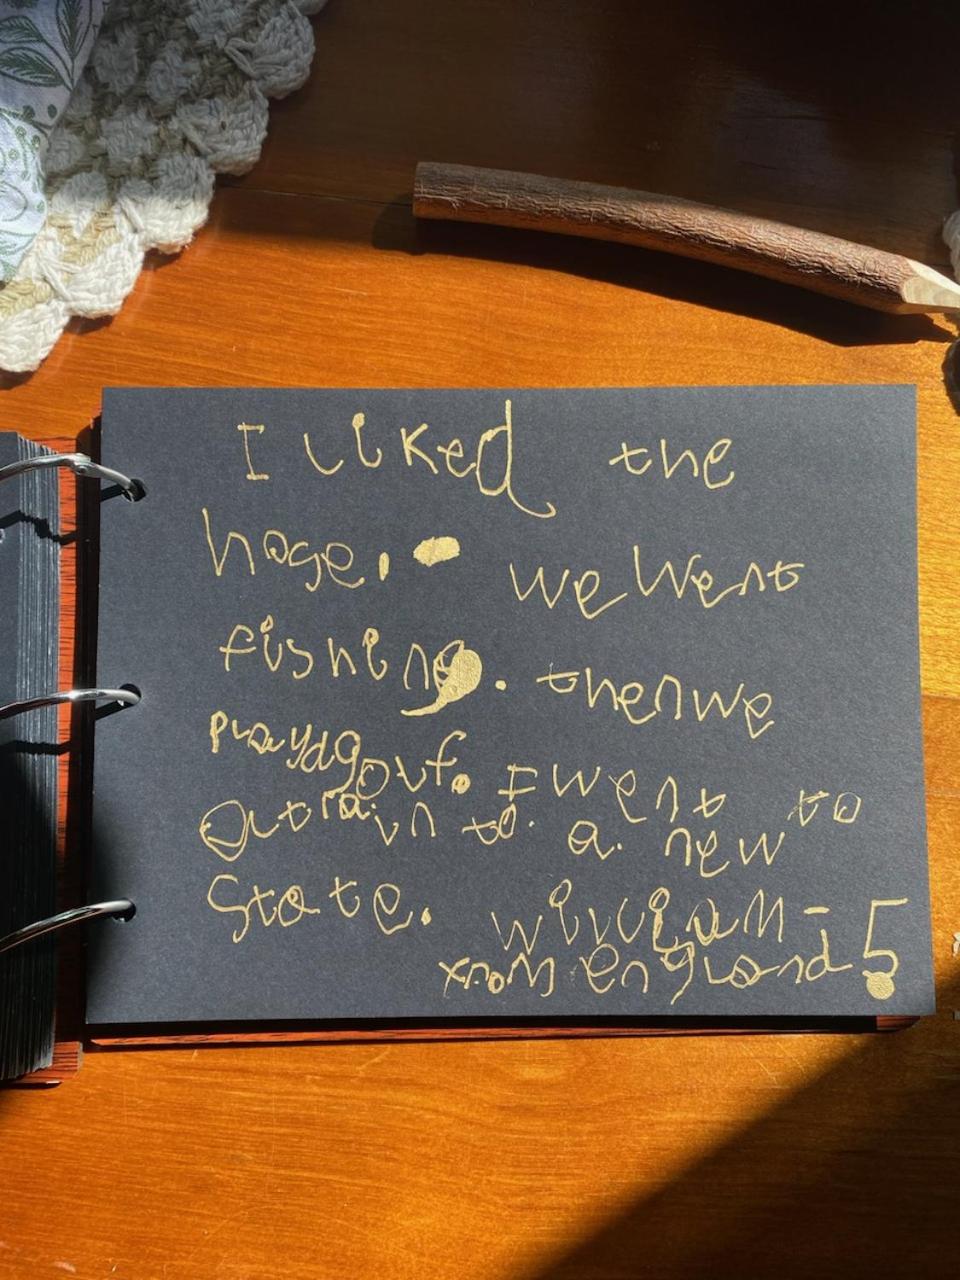 I liked the
hose. we went
fishing. then we
playd golf. I went to
a train to a new
state. william - 5
from england